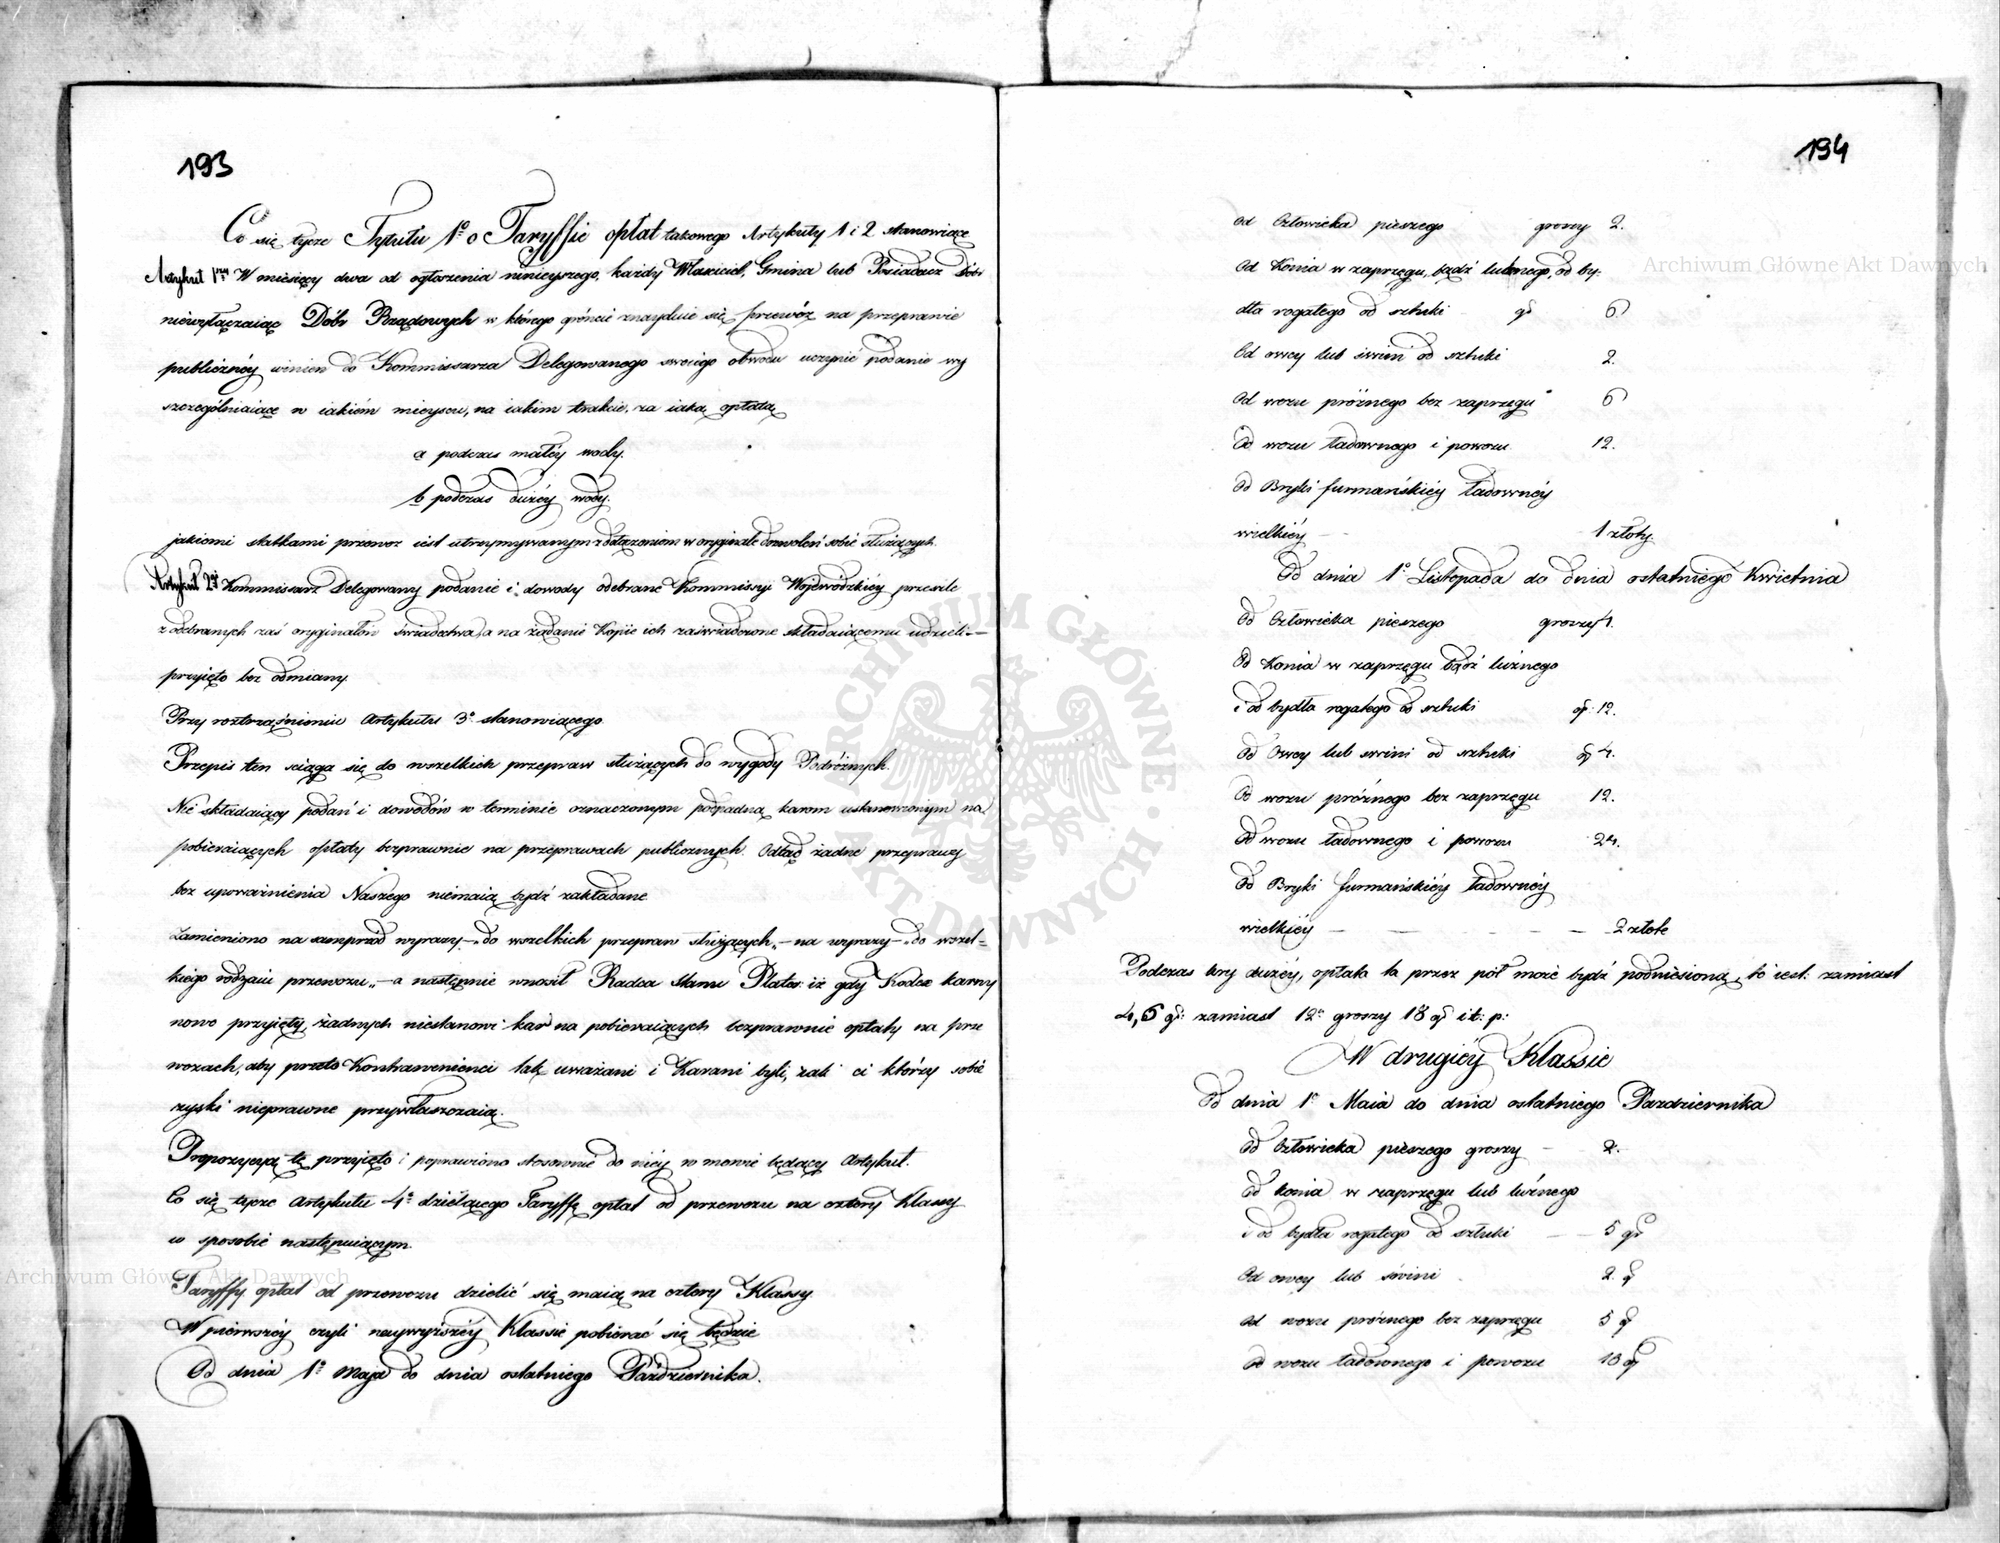 193
Co się tycze Tytułu 1º o Taryffie opłat takowego Artykuły 1 i 2 stanowiące
Artykuł 1wszy W miesięcy dwa od ogłoszenia ninieyszego, każdy Właściciel, Gmina lub Posiadacz Dóbr
niewyłączaiąc Dóbr Rządowych w którego gróncie znayduie się przewóz na przeprawie
publicznéy winien do Kommissarza Delegowanego swoiego obwodu uczynić podanie wy
szczególniaiące w iakiém mieyscu, na iakim trakcie, za iaką opłatą
a podczas małéy wody.
b podczas dużéy wody.
jakiemi statkami przewoz iest utrzymywanym z dołączeniem w oryginale dozwoleń sobie służących.
Artykuł 2gi Kommissarz Delegowany podanie i dowody odebrane Kommissyi Wojewódzkiéy prześle
z odebranych zaś oryginałów świadectwa, a na żądanie Kopie ich zaświadczone składaiącemu udzieli —
przyięto bez odmiany.
Przy roztrząśnieniu Artykułu 3º stanowiącego.
Przepis ten sciąga się do wszelkich przepraw służących do wygody Podróżnych.
Nie składaiący podań i dowodów w terminie oznaczonym podpadną karom ustanowionym na
pobieraiących opłaty bezprawnie na przeprawach publicznych. Odtąd żadne przeprawy
bez upoważnienia Naszego niemaią bydź zakładane.
Zamieniono na samprzód wyrazy —„do wszelkich przepraw służących„— na wyrazy —„do wszel=
kiego rodzaiu przewozu„— a następnie wnosił Radca Stanu Plater: iż gdy Kodex karny
nowo przyięty, żadnych niestanowi kar na pobieraiących bezprawnie opłaty na prze
wozach, aby przeto Kontrawenienci tak uważani i Karani byli, iak ci którzy sobie
zyski nieprawne przywłaszczaią.
Propozycyą tę przyięto i poprawiono stosownie do niéy w mowie będący Artykuł.
Co się tycze Artykułu 4º dzielącego Taryffę opłat od przewozu na cztery Klassy
w sposobie następuiącym.
Taryffy opłat od przewozu dzielić się maią na cztery Klassy
W pierwszéy czyli naywyższéy Klassie pobierać się będzie
Od dnia 1º Maja do dnia ostatniego Października.
194
Od Człowieka pieszego groszy 2.
Od Konia w zaprzęgu, bądź luźnego, od by:
dła rogatego od sztuki gr 6
Od owcy lub świni od sztuki 2.
Od wozu próżnego bez zaprzęgu 6
Od wozu ładownego i powozu 12.
Od Bryki furmańskiéy ładownéy
wielkiéy — 1 złoty.
Od dnia 1º Listopada do dnia ostatniego Kwietnia
Od Człowieka pieszego groszy 4.
Od Konia w zaprzęgu bądź luźnego
i od bydła rogatego od sztuki gr: 12.
Od Owcy lub swini od sztuki gr 4.
Od wozu próżnego bez zaprzęgu 12.
Od wozu ładownego i powozu 24.
Od Bryki furmańskiéy ładownéy
wielkiéy — — — — 2 złote
Podczas kry dużéy, opłata ta przez pół może bydź podniesioną, to iest: zamiast
4, 6 gr: zamiast 12 groszy 18 gr it: p:
W drugiéy Klassie
Od dnia 1º Maia do dnia ostatniego Pazdziernika
Od Człowieka pieszego groszy — 2.
Od konia w zaprzęgu lub luźnego
i od bydła rogatego od sztuki — — 5 gr
Od owcy lub świni 2. gr
Od wozu próżnego bez zaprzęgu 5 gr
Od wozu ładownego i powozu 10 gr
Archiwum Główne Akt Dawnych
Archiwum Główne Akt Dawnych
ARCHIWUM GŁÓWNE AKT DAWNYCH